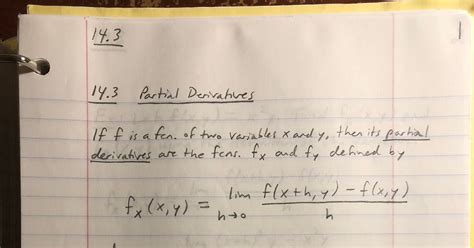 14.3
1
14.3 Partial Derivatives
If f is a fcn. of two variables x and y, then its partial
derivatives are the fcns. fₓ and f_y defined by
fₓ(x,y) = lim h→0 (f(x+h, y) − f(x,y)) / h